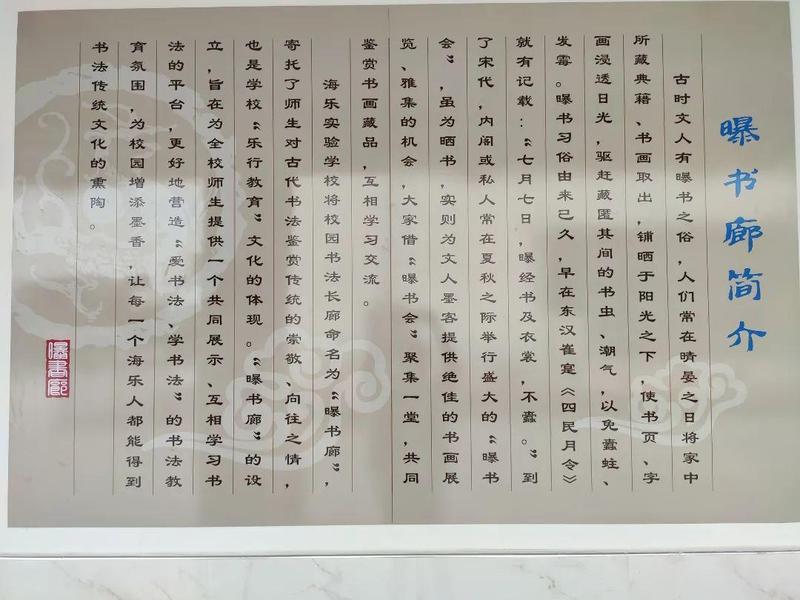 曝书廊简介
古时文人有曝书之俗，人们常在晴晏之日将家中
所藏典籍、书画取出，铺晒于阳光之下，使书页、字
画浸透日光，驱赶藏匿其间的书虫、潮气，以免蠹蛀、
发霉。曝书习俗由来已久，早在东汉崔寔《四民月令》
就有记载：“七月七日，曝经书及衣裳，不蠹。”到
了宋代，内阁或私人常在夏秋之际举行盛大的“曝书
会”，虽为晒书，实则为文人墨客提供绝佳的书画展
览、雅集的机会，大家借“曝书会”聚集一堂，共同
鉴赏书画藏品，互相学习交流。
海乐实验学校将校园书法长廊命名为“曝书廊”，
寄托了师生对古代书法鉴赏传统的崇敬、向往之情，
也是学校“乐行教育”文化的体现。“曝书廊”的设
立，旨在为全校师生提供一个共同展示、互相学习书
法的平台，更好地营造“爱书法、学书法”的书法教
育氛围，为校园增添墨香，让每一个海乐人都能得到
书法传统文化的熏陶。
曝書廊